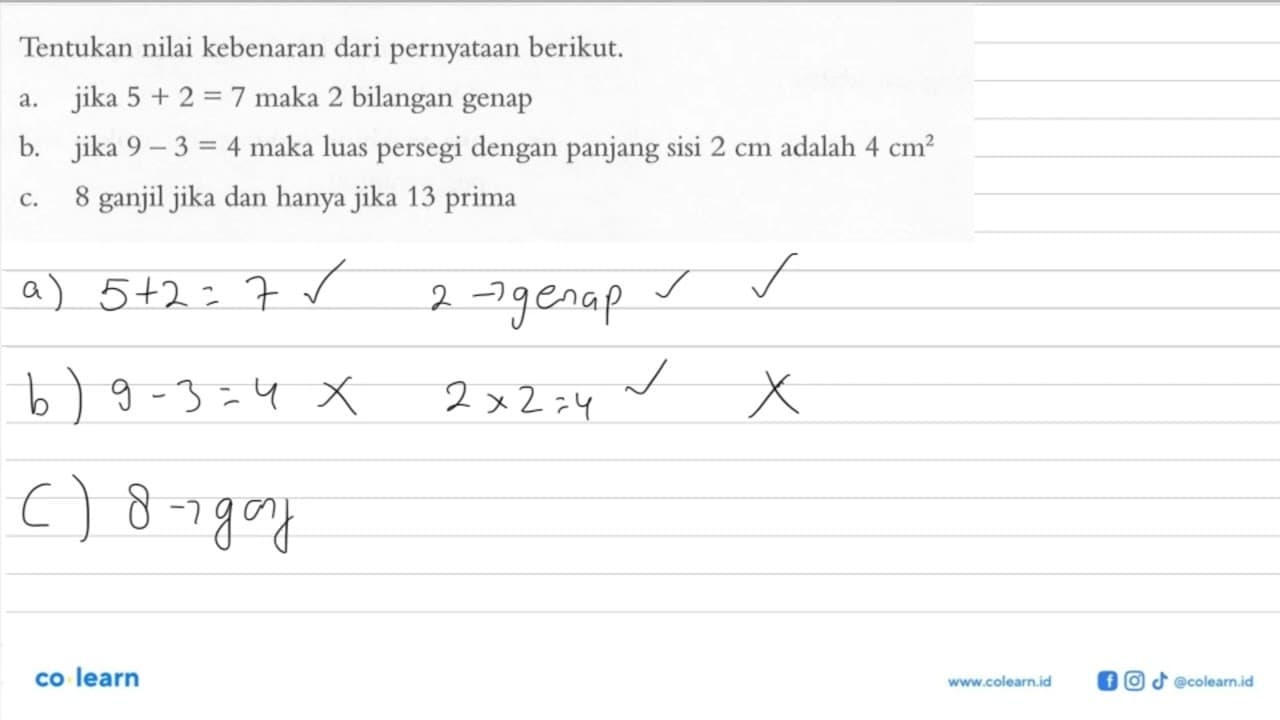 Tentukan nilai kebenaran dari pernyataan berikut.
a. jika 5 + 2 = 7 maka 2 bilangan genap
b. jika 9 – 3 = 4 maka luas persegi dengan panjang sisi 2 cm adalah 4 cm²
c. 8 ganjil jika dan hanya jika 13 prima
a) 5+2 = 7 ✓ 2 → genap ✓ ✓
b) 9 - 3 = 4 X 2 × 2 = 4 ✓ X
C) 8 →
co learn
www.colearn.id @colearn.id